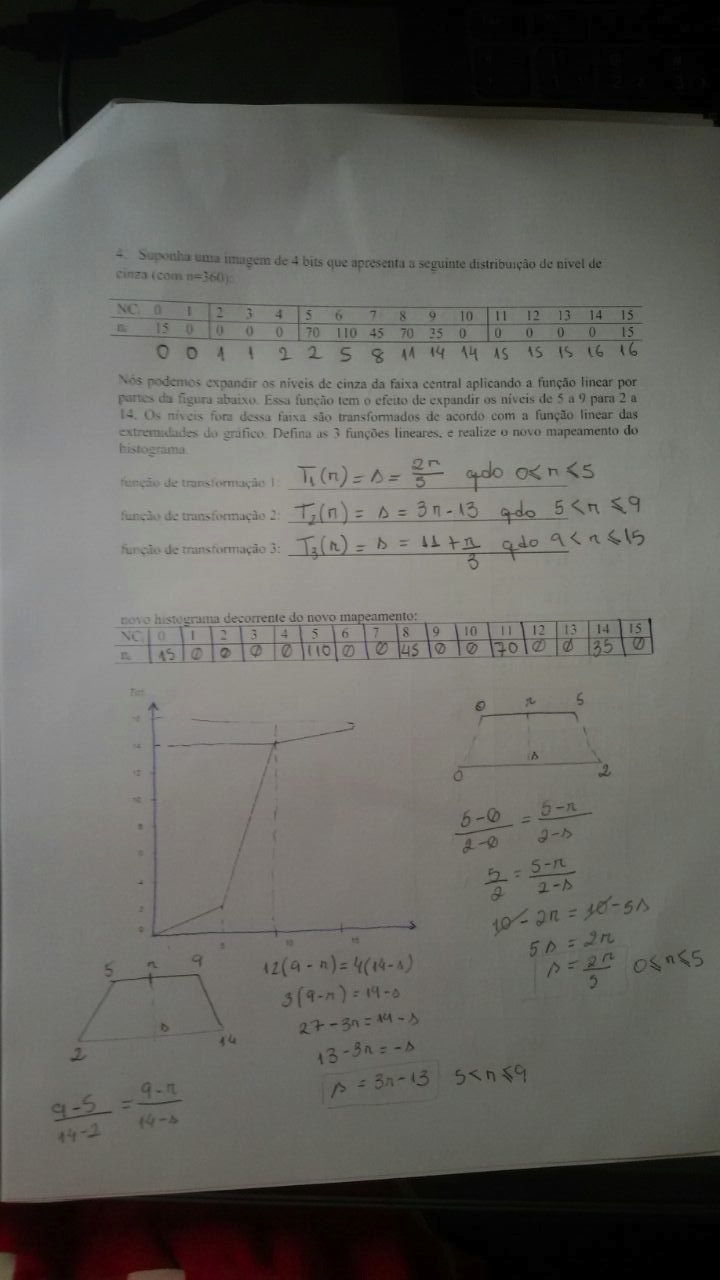 4. Suponha uma imagem de 4 bits que apresenta a seguinte distribuição de nível de
cinza (com n=360):
NC 0 1 2 3 4 5 6 7 8 9 10 11 12 13 14 15
n 15 0 0 0 0 70 110 45 70 35 0 0 0 0 0 15
0 0 1 1 2 2 5 8 11 14 14 15 15 15 16 16
Nós podemos expandir os níveis de cinza da faixa central aplicando a função linear por
partes da figura abaixo. Essa função tem o efeito de expandir os níveis de 5 a 9 para 2 a
14. Os níveis fora dessa faixa são transformados de acordo com a função linear das
extremidades do gráfico. Defina as 3 funções lineares, e realize o novo mapeamento do
histograma.
função de transformação 1: T₁(r) = s = 2r/5 qdo 0<r≤5
função de transformação 2: T₂(r) = s = 3r-13 qdo 5<r≤9
função de transformação 3: T₃(r) = s = 11+r/3 qdo 9<r≤15
novo histograma decorrente do novo mapeamento:
NC 0 1 2 3 4 5 6 7 8 9 10 11 12 13 14 15
n 15 0 0 0 0 110 0 0 45 0 0 70 0 0 35 0
14
12
10
8
6
4
2
0
5 10 15
0 r 5
0 s 2
5-0/2-0 = 5-r/2-s
5/2 = 5-r/2-s
10-2r = 10-5s
5s = 2r
s = 2r/5 0≤r≤5
5 r 9
2 s 14
9-5/14-2 = 9-r/14-s
12(9-r) = 4(14-s)
3(9-r) = 14-s
27-3r = 14-s
13-3r = -s
s = 3r-13 5<r≤9